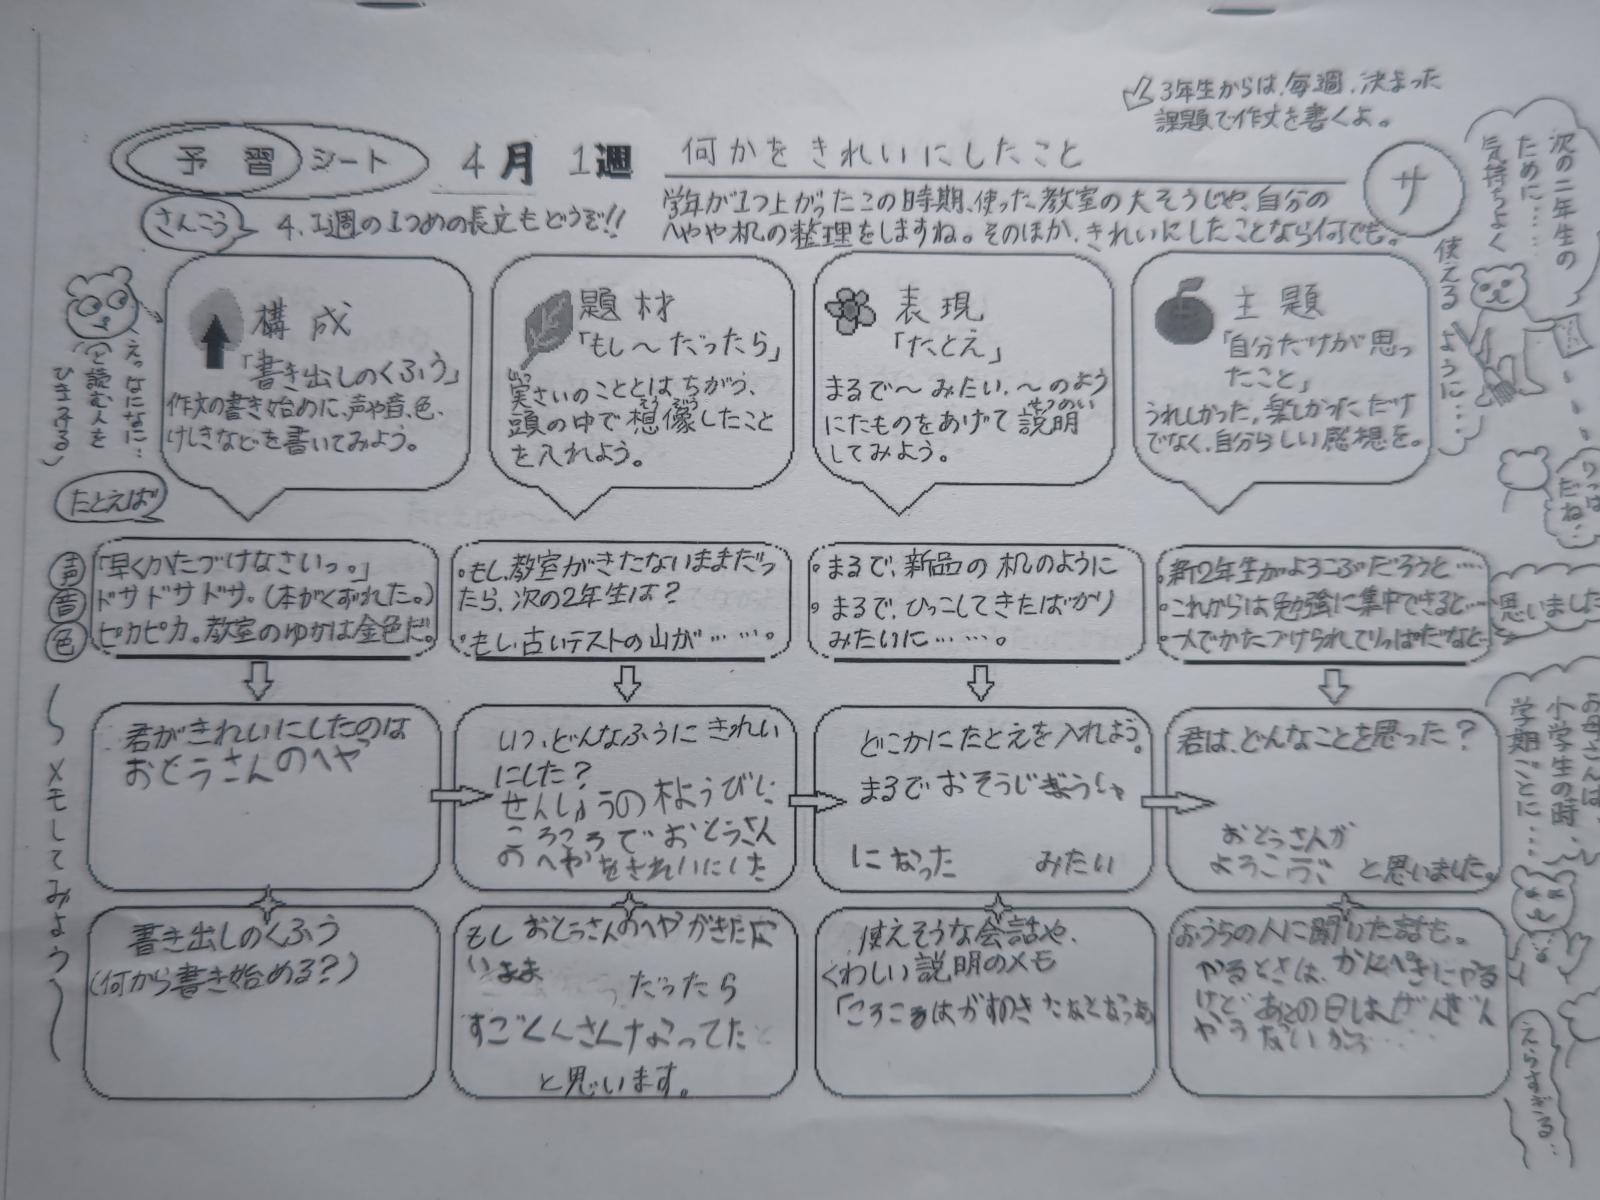 3年生からは、毎週、決まった
課題で作文を書くよ。
予習シート 4月1週 何かをきれいにしたこと
サ
さんこう 4.1週の1つめの長文もどうぞ!!
学年が1つ上がったこの時期、使った教室の大そうじや、自分の
へやや机の整理をしますね。そのほか、きれいにしたことなら何でも。
次の二年生の
ために……
気持ちよく
使えるように…
構成
「書き出しのくふう」
作文の書き始めに、声や音、色、
けしきなどを書いてみよう。
えっなになに…
と読む人を
ひきつける
題材
「もし〜だったら」
実さいのこととはちがう、
じっ
頭の中で想像したこと
そう ぞう
を入れよう。
表現
「たとえ」
まるで〜みたい、〜のよう
にたものをあげて説明
せつめい
してみよう。
主題
「自分だけが思っ
たこと」
うれしかった、楽しかっただけ
でなく、自分らしい感想を。
たとえば
声 「早くかたづけなさいっ。」
音 ドサドサドサ。(本がくずれた。)
色 ピカピカ。教室のゆかは金色だ。
・もし、教室がきたないままだっ
たら、次の2年生は?
・もし、古いテストの山が……。
・まるで、新品の机のように
・まるで、ひっこしてきたばかり
みたいに……。
・新2年生がよろこぶだろうと……
・これからは勉強に集中できると…
・一人でかたづけられてりっぱだなと…
思いました
〜メモしてみよう〜
君がきれいにしたのは
おとうさんのへや
いつ、どんなふうにきれい
にした?
せんしゅうの木ようびに
ころころでおとうさん
のへやをきれいにした
どこかにたとえを入れよう。
まるでおそうじぎょうしゃ
になった みたい
君は、どんなことを思った?
おとうさんが
よろこぶ と思いました。
書き出しのくふう
(何から書き始める?)
もし おとうさんのへやがきたな
いまま だったら
と思います。
使えそうな会話や、
くわしい説明のメモ
おうちの人に聞いた話も。
やるときは、かんぺきにやる
けど、あとの日はぜんぜん
やらないから……
お母さんは、
小学生の時、
学期ごとに…
えらすぎる…